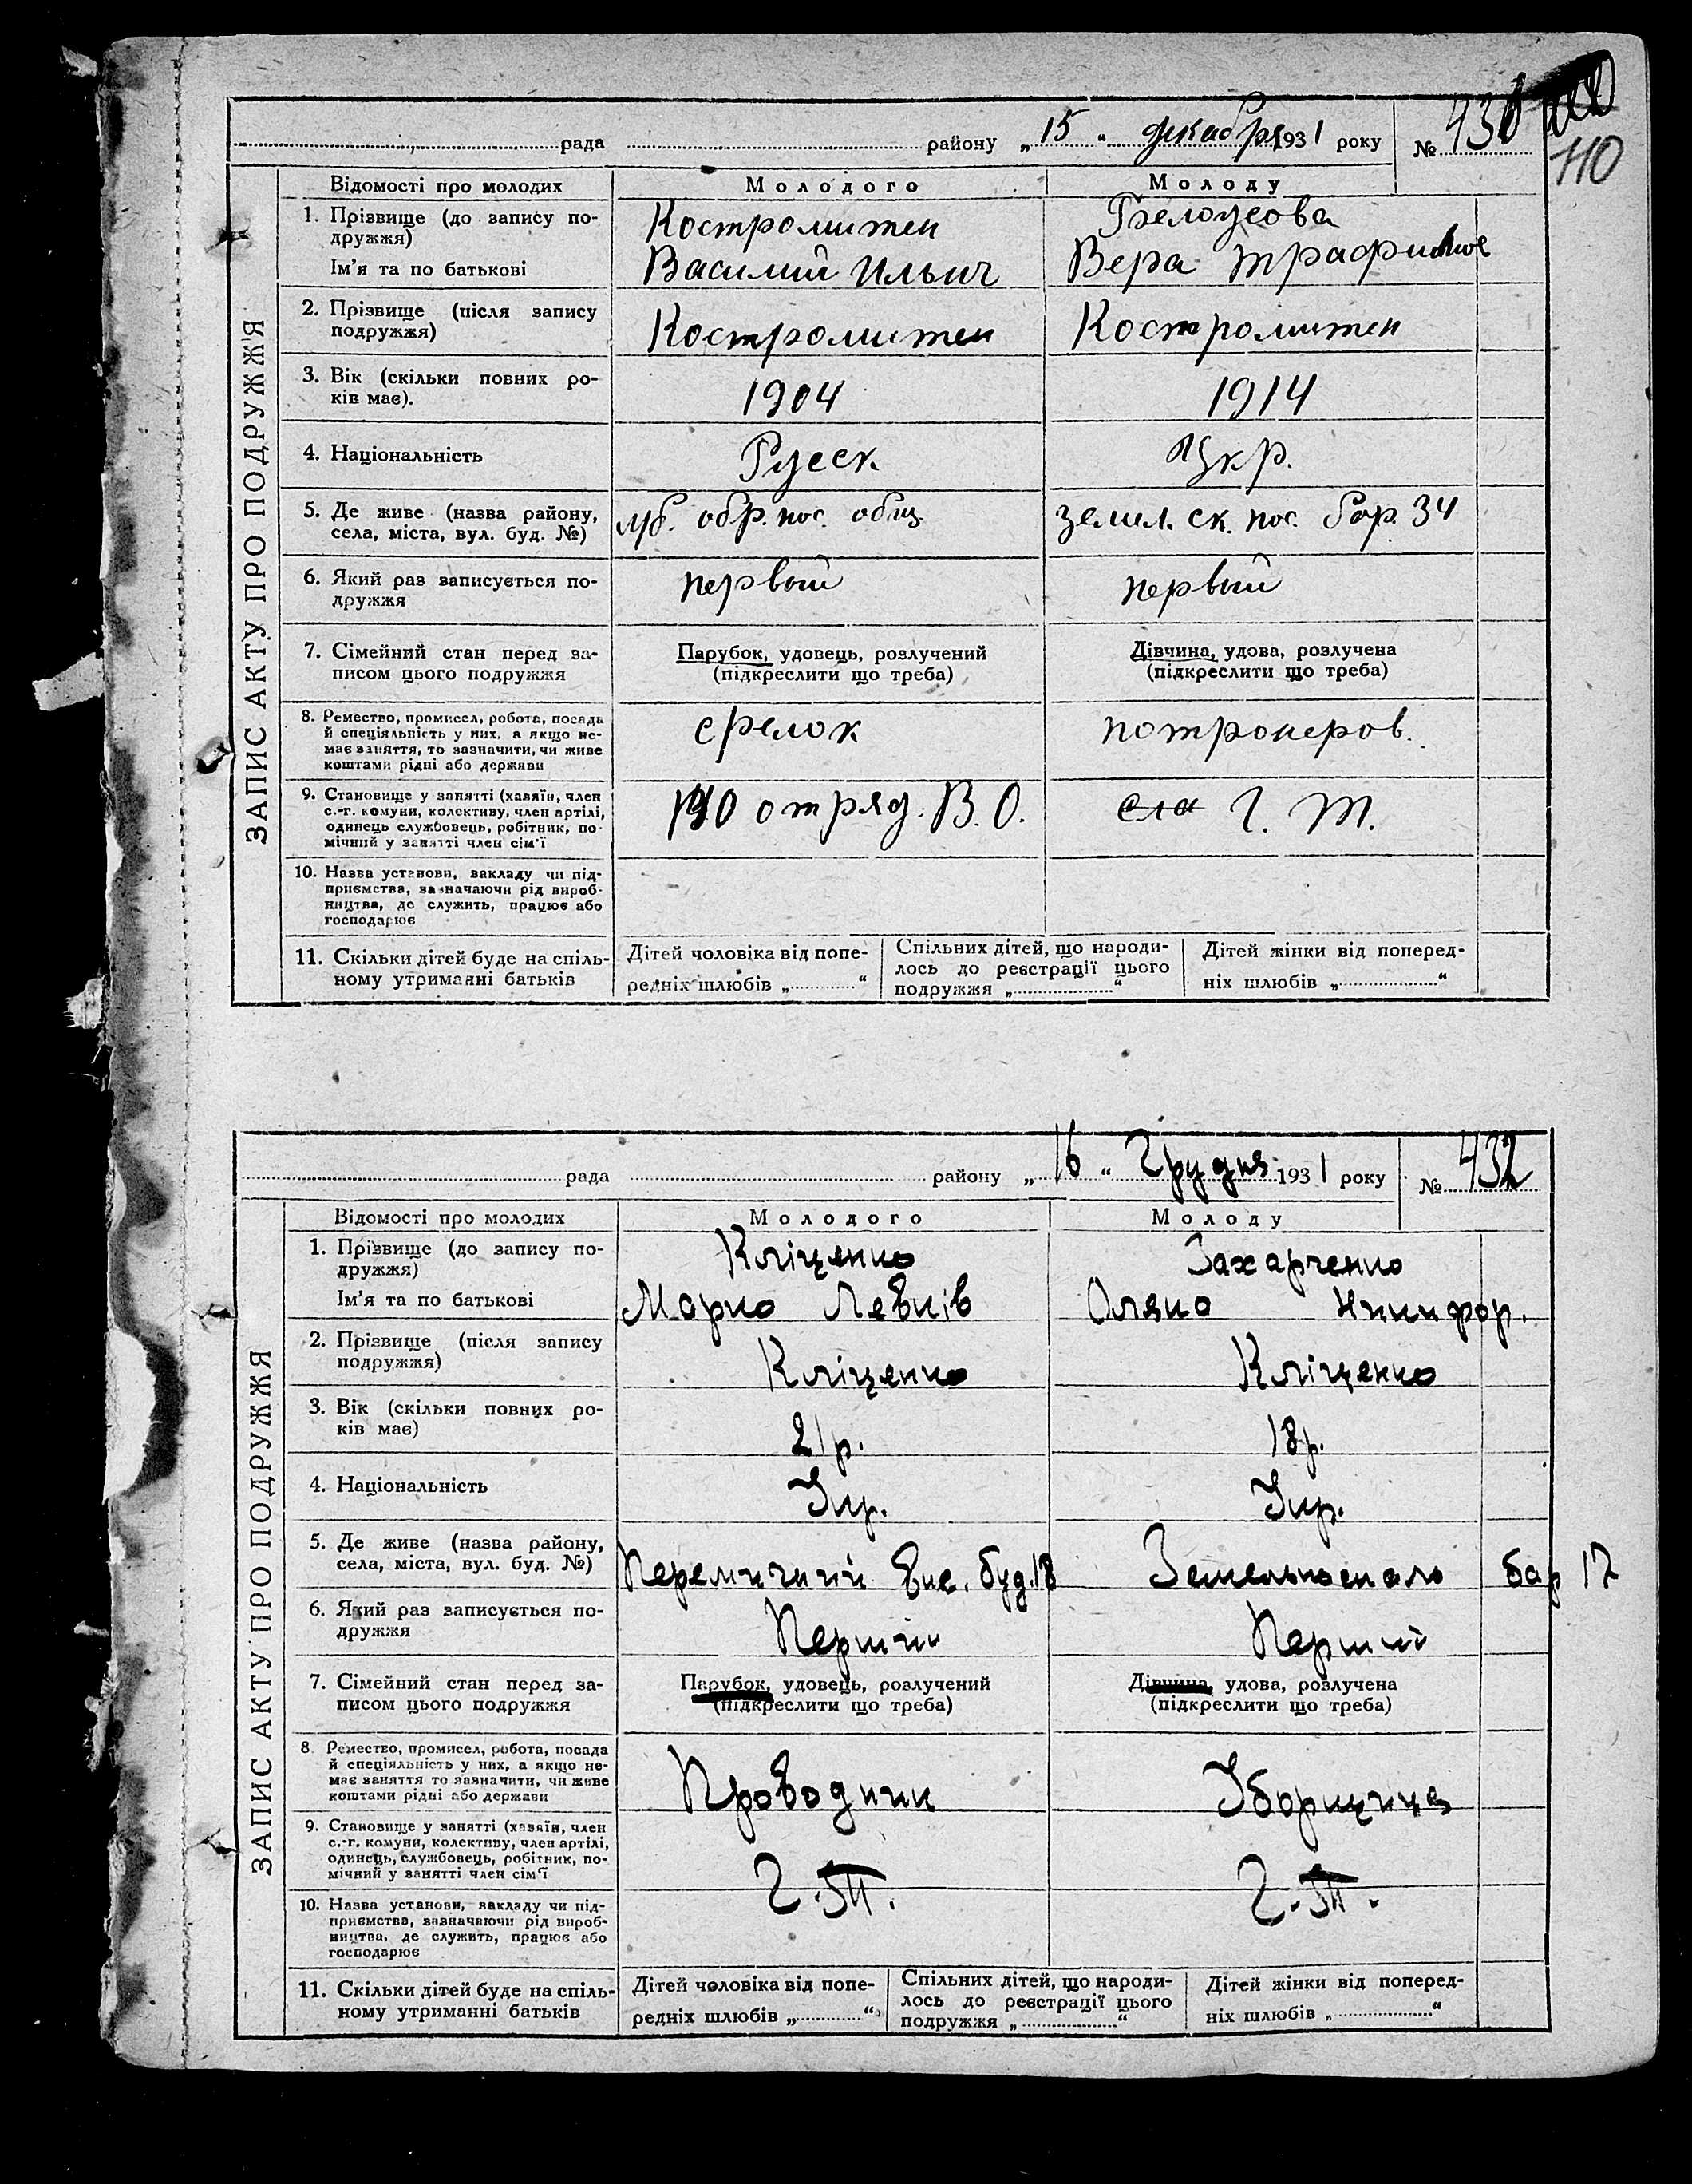 рада района „ 15 “ декабря 1931 року № 430
110
ЗАПИС АКТУ ПРО ПОДРУЖЖ'Я
Відомості про молодих Молодого Молоду
1. Прізвище (до запису по-
дружжя)
Костромитен Белоусова
Ім'я та по батькові Василий Ильич Вера
2. Прізвище (після запису
подружжя)
Костромитен Костромитен
3. Вік (скільки повних ро-
ків має).
1904 1914
4. Національність Русск Укр.
5. Де живе (назва району,
села, міста, вул. буд. №)
обр. пос. общ. земел. ск. пос. бар. 34
6. Який раз записується по-
дружжя
первый первый
7. Сімейний стан перед за-
писом цього подружжя
Парубок, удовець, розлучений
(підкреслити що треба)
Дівчина, удова, розлучена
(підкреслити що треба)
8. Ремество, промисел, робота, посада
й спеціяльність у них, а якщо не-
має заняття, то зазначити, чи живе
коштами рідні або держави
срелок потронеров.
9. Становище у занятті (хазяїн, член
с.-г. комуни, колективу, член артілі,
одинець службовець, робітник, по-
мічний у занятті член сім'ї
отряд. В. О. Г. Т.
10. Назва установи, закладу чи під-
приємства, зазначаючи рід вироб-
ництва, де служить, працює або
господарює
11. Скільки дітей буде на спіль-
ному утриманні батьків
Дітей чоловіка від попе-
редніх шлюбів „ “
Спільних дітей, що народи-
лось до реєстрації цього
подружжя „ “
Дітей жінки від поперед-
ніх шлюбів „ “
рада району „ 16 “ Грудня 1931 року № 432
ЗАПИС АКТУ ПРО ПОДРУЖЖЯ
Відомості про молодих Молодого Молоду
1. Прізвище (до запису по-
дружжя)
Кліценко Захарченко
Ім'я та по батькові Марко Левків Оляна Никифор.
2. Прізвище (після запису
подружжя)
Кліценко Кліценко
3. Вік (скільки повних ро-
ків має)
21р. 18р.
4. Національність Укр. Укр.
5. Де живе (назва району,
села, міста, вул. буд. №)
буд. 18 бар 17
6. Який раз записується по-
дружжя
Перший Перший
7. Сімейний стан перед за-
писом цього подружжя
Парубок, удовець, розлучений
(підкреслити що треба)
Дівчина, удова, розлучена
(підкреслити що треба)
8. Ремество, промисел, робота, посада
й спеціяльність у них, а якщо не-
має заняття то зазначити, чи живе
коштами рідні або держави
Проводник Уборщица
9. Становище у занятті (хазяїн, член
с.-г. комуни, колективу, член артілі,
одинець, службовець, робітник, по-
мічний у занятті член сім'ї
Г.Т. Г.Т.
10. Назва установи, закладу чи під-
приємства, зазначаючи рід вироб-
ництва, де служить, працює або
господарює
11. Скільки дітей буде на спіль-
ному утриманні батьків
Дітей чоловіка від попе-
редніх шлюбів „ “
Спільних дітей, що народи-
лось до реєстрації цього
подружжя „ “
Дітей жінки від поперед-
ніх шлюбів „ “